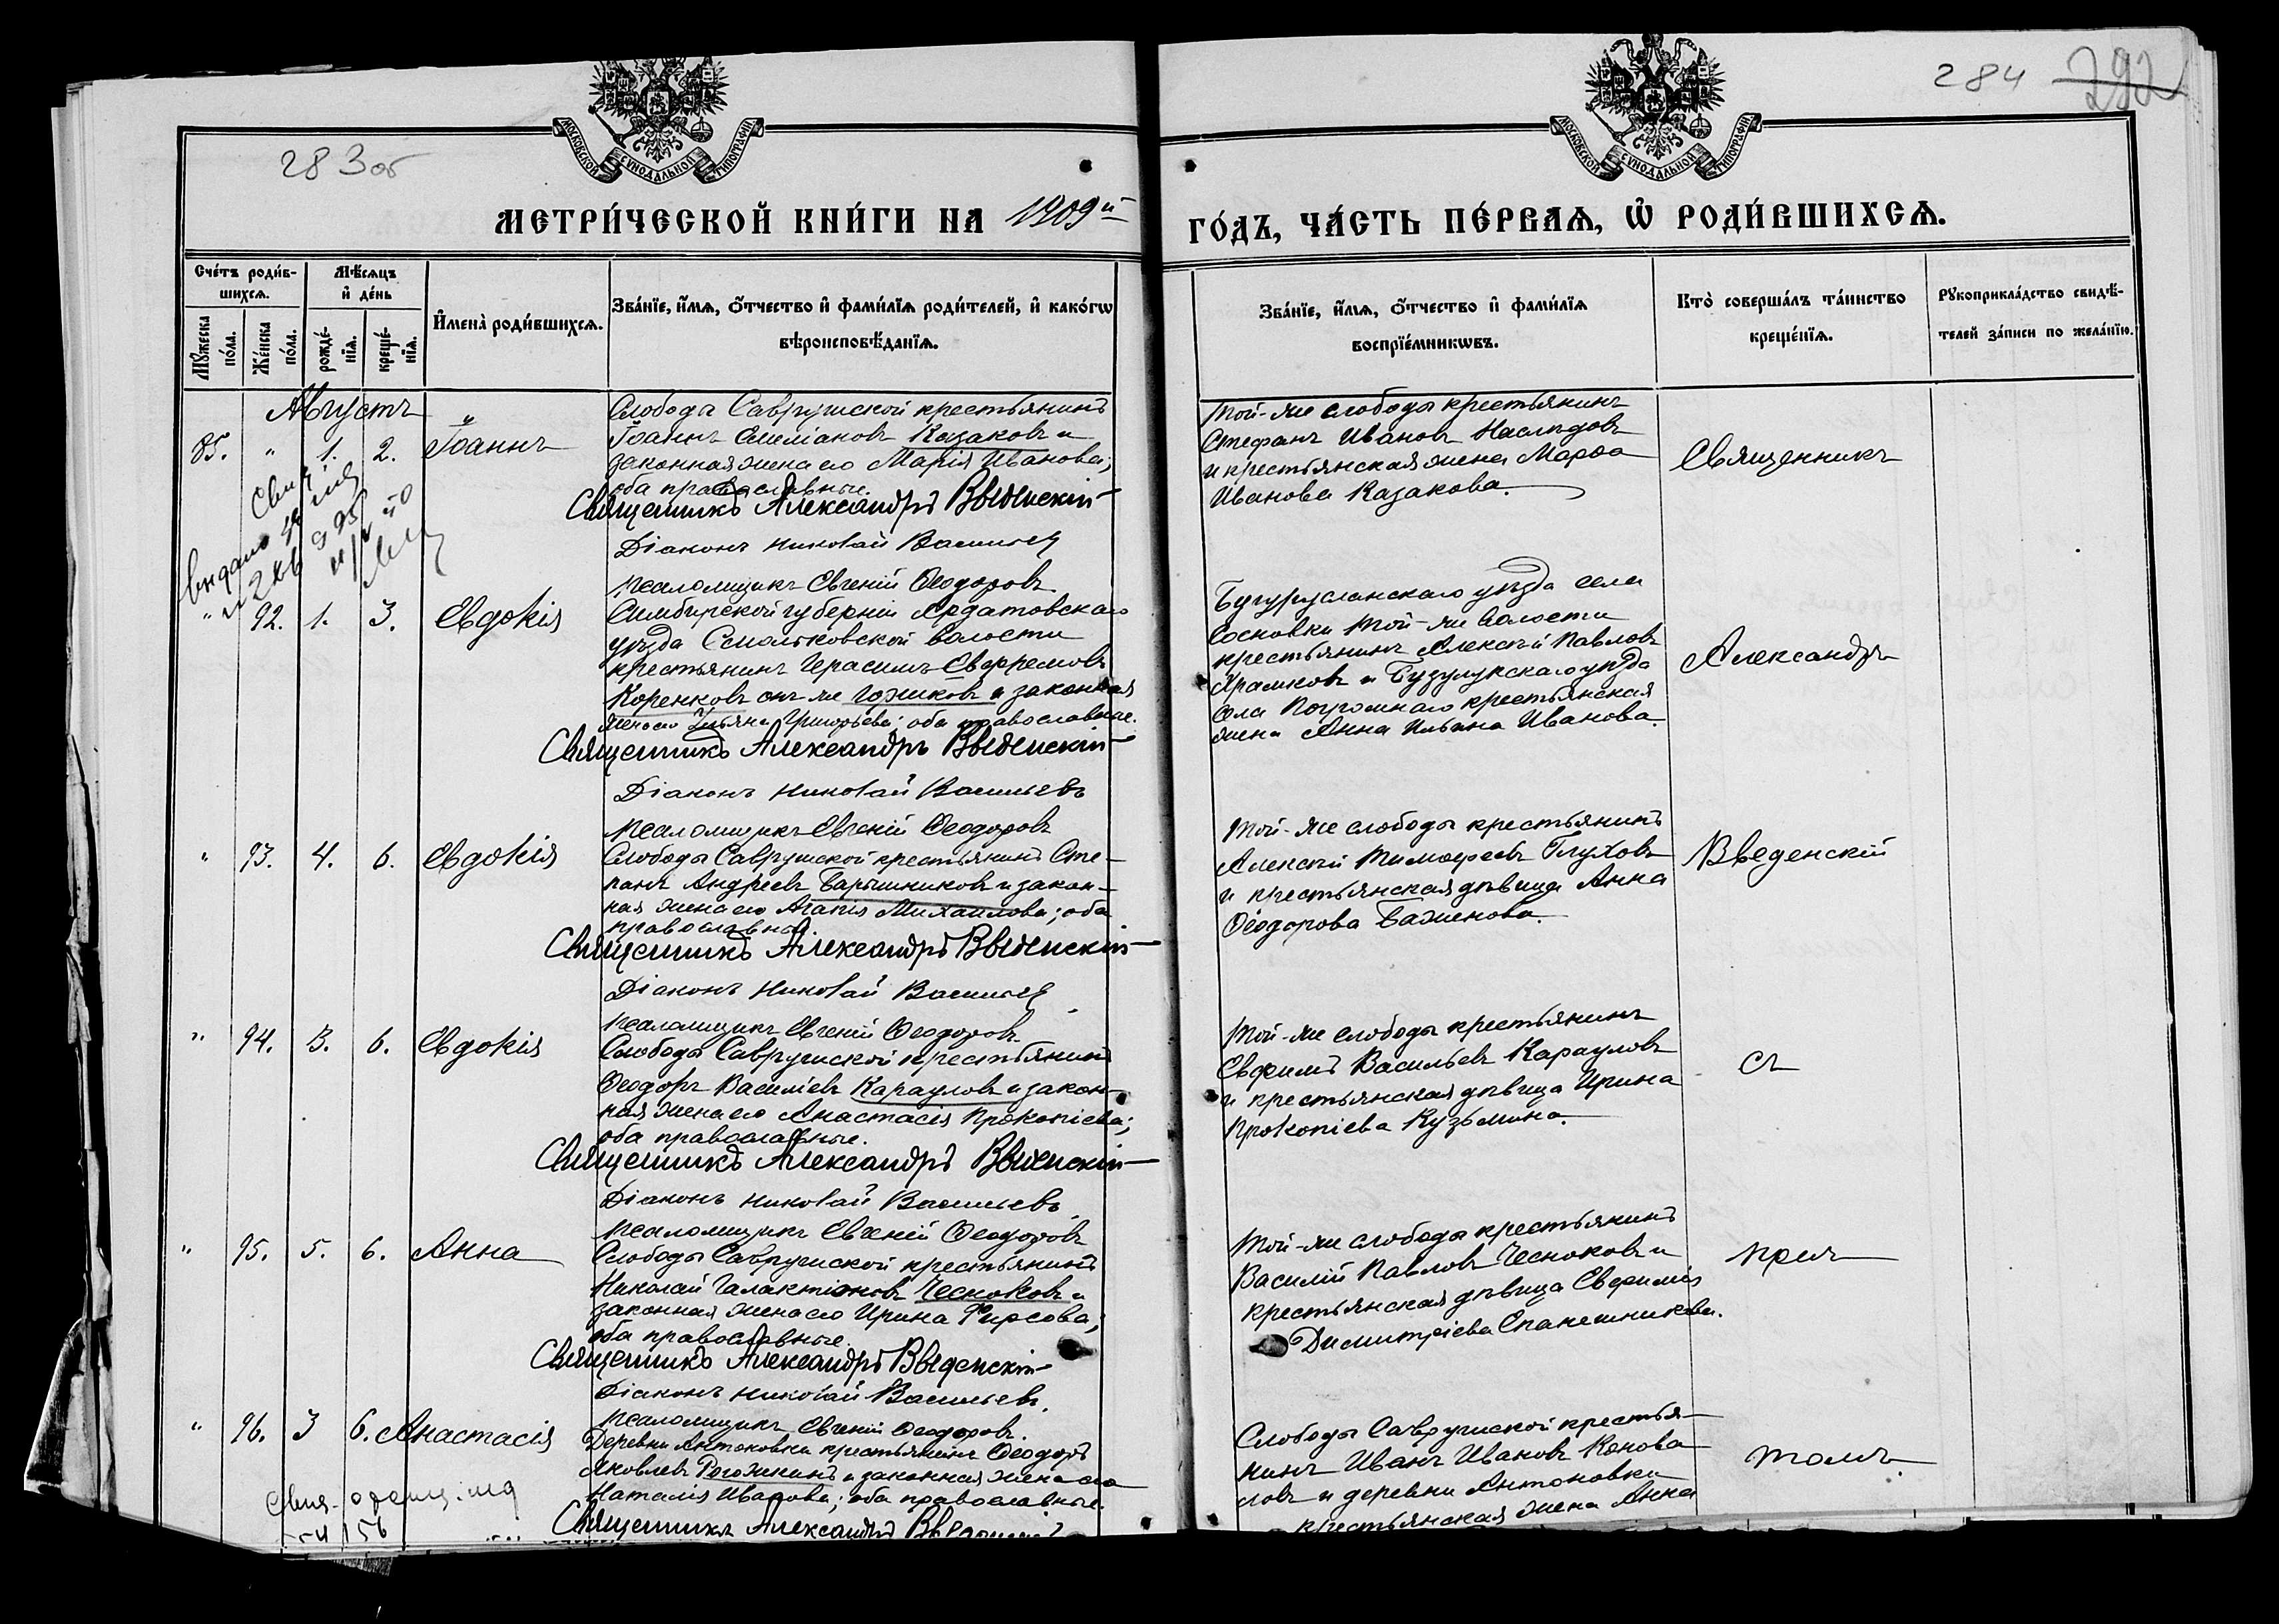 283об
284
292
МОСКОВСКОЙ СѴНОДАЛЬНОЙ ТИПОГРАФІИ
МОСКОВСКОЙ СѴНОДАЛЬНОЙ ТИПОГРАФІИ
МЕТРИ́ЧЕСКОЙ КНИ́ГИ НА 1909й
ГО́ДЪ, ЧА́СТЬ ПЕ́РВАѦ, Ѡ҆ РОДИ́ВШИХСѦ.
Сче́тъ роди́в-
шихсѧ.
Мꙋ́жеска по́ла.
Же́нска по́ла.
Мѣ́сѧцъ
и҆ де́нь
рожде́-
нїѧ.
креще́-
нїѧ.
И҆мена̀ роди́вшихсѧ.
Зва́нїе, и҆́мѧ, ѻ҆́тчество и҆ фами́лїѧ роди́телей, и҆ како́гѡ
вѣроисповѣ́данїѧ.
Зва́нїе, и҆́мѧ, ѻ҆́тчество и҆ фами́лїѧ
воспрїе́мникѡвъ.
Кто̀ соверша́лъ та́инство
креще́нїѧ.
Рꙋкоприкла́дство свидѣ́-
телей за́писи по жела́нїю.
Августъ
85. " 1. 2. Іоаннъ
Слободы Савруш​ской крестьянинъ
Іоаннъ Симіановъ Казаковъ и
законная жена его Марія Иванова;
оба православные.
Священникъ Александръ Введенскій
Діаконъ Николай Васильев
Псаломщикъ Евгеній Ѳеодоровъ
Той-же слободы крестьянинъ
Стефанъ Ивановъ Наслѣдовъ
и крестьянская жена Марѳа
Иванова Казакова.
Священникъ
выдано
" 92. 1. 3. Евдокія
Симбирской губерніи Ардатовскаго
уѣзда Сиольковской волости
крестьянинъ Герасимъ Евфремовъ
Коренковъ онъ же Гожиковъ и законная
жена его Ульяна Григорьева; оба православные.
Священникъ Александръ Введенскій
Діаконъ Николай Васильевъ
Псаломщикъ Евгеній Ѳеодоровъ
Бугурусланскаго уѣзда села
Сосновки той-же волости
крестьянинъ Алексѣй Павловъ
Храмковъ и Бузулукскаго уѣзда
села Погромнаго крестьянская
жена Анна Ильина Иванова.
Александръ
" 93. 4. 6. Евдокія
Слободы Саврушской крестьянинъ Сте-
панъ Андреевъ Барышниковъ и закон-
ная жена его Агапія Михаилова; оба
православные.
Священникъ Александръ Введенскій
Діаконъ Николай Васильев
Псаломщикъ Евгеній Ѳеодоровъ
Той-же слободы крестьянинъ
Алексѣй Тимоѳеевъ Глуховъ
и крестьянская дѣвица Анна
Ѳеодорова Баженова.
Введенскій
" 94. 3. 6. Евдокія
Слободы Саврушской крестьянинъ
Ѳеодоръ Василіевъ Карауловъ и закон-
ная жена его Анастасія Прокопіева;
оба православные.
Священникъ Александръ Введенскій
Діаконъ Николай Васильевъ
Псаломщикъ Евгеній Ѳеодоровъ
Той-же слободы крестьянинъ
Евфимъ Васильевъ Карауловъ
и крестьянская дѣвица Ирина
Прокопіева Кузьмина.
съ
" 95. 5. 6. Анна
Слободы Саврушской крестьянинъ
Николай Галактіоновъ Чесноковъ и
законная жена его Ирина Фирсова;
оба православные.
Священникъ Александръ Введенскій
Діаконъ Николай Васильевъ.
Псаломщикъ Евгеній Ѳеодоровъ.
Той-же слободы крестьянинъ
Василій Павловъ Чесноковъ и
крестьянская дѣвица Евфимія
Димитріева Спанешникова.
прич
" 96. 3 6. Анастасія
Деревни Антоновки крестьянинъ Ѳеодоръ
Яковлевъ Рогожкинъ и законная жена его
Наталія Иванова; оба православные.
Священникъ Александръ Введенскій
Слободы Саврушской крестья-
нинъ Иванъ Ивановъ Конова-
ловъ и деревни Антоновки
крестьянская жена Анна
томъ.